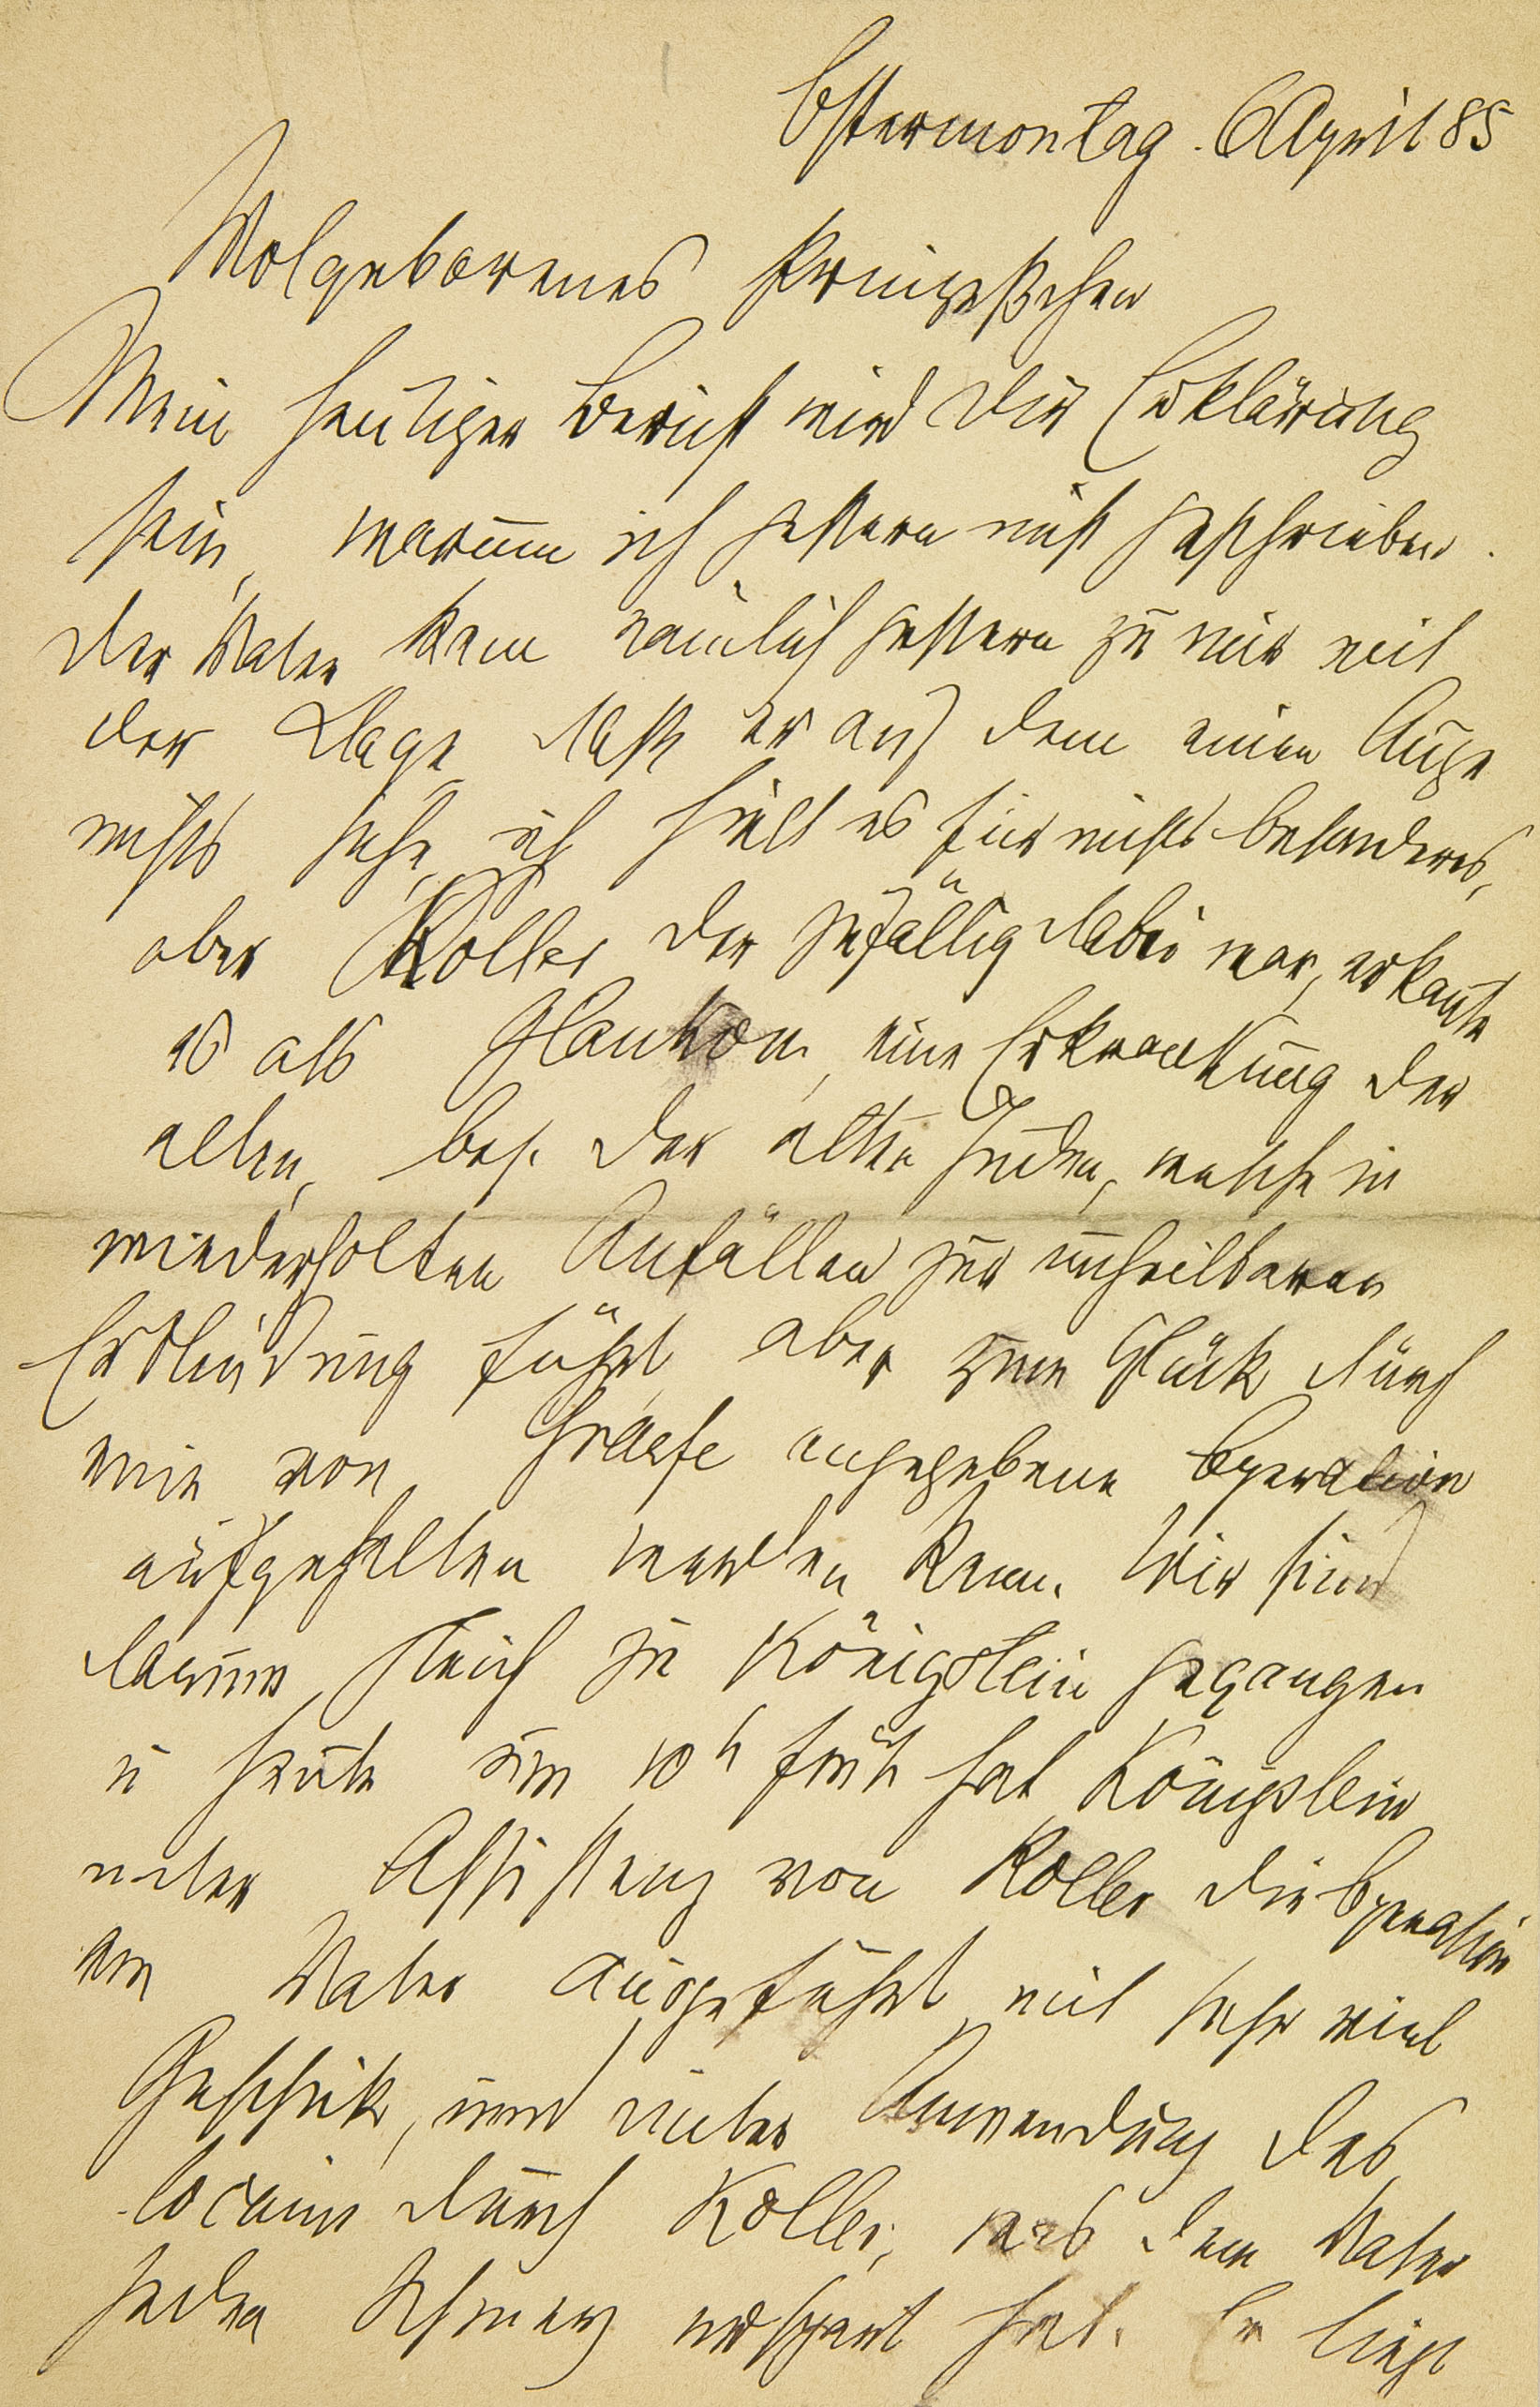 Ostermontag. 6 April 85
Wolgeborenes Prinzeßchen
Mein heutiger Bericht wird Dir Erklärung
sein, warum ich gestern nicht geschrieben.
Der Vater kam nämlich gestern zu mir mit
der Klage, daß er auf dem einen Auge
nichts sehe, ich hielt es für nichts besonderes,
aber Koller der zufällig dabei war, erkannte
es als Glaukom, eine Erkrankung der
alten, bes. der alten Juden, welche in
wiederholten Anfällen zur unheilbaren
Erblindung führt, aber zum Glück durch
eine von Graefe angegebene Operation
aufgehalten werden kann. Wir sind
darum gleich zu Königstein gegangen
u heute um 10h früh hat Königstein
unter Assistenz von Koller die Operation
am Vater ausgeführt mit sehr viel
Geschick, und unter Anwendung des
Cocains durch Koller, was dem Vater
jeden Schmerz erspart hat. Er liegt